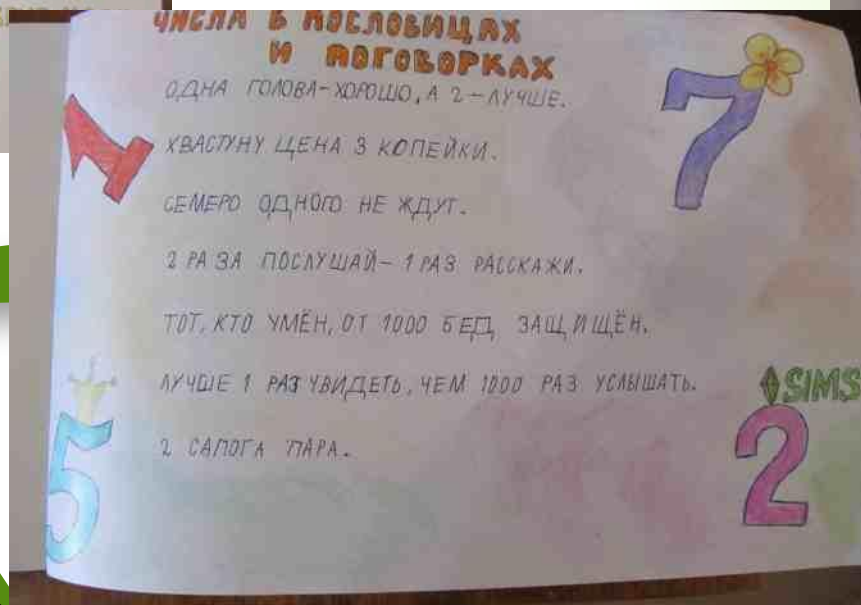 ЧИСЛА В ПОСЛОВИЦАХ
И ПОГОВОРКАХ
7
ОДНА ГОЛОВА-ХОРОШО, А 2-ЛУЧШЕ.
1
ХВАСТУНУ ЦЕНА 3 КОПЕЙКИ.
СЕМЕРО ОДНОГО НЕ ЖДУТ.
2 РАЗА ПОСЛУШАЙ-1 РАЗ РАССКАЖИ.
ТОТ, КТО УМЁН, ОТ 1000 БЕД ЗАЩИЩЁН.
ЛУЧШЕ 1 РАЗ УВИДЕТЬ, ЧЕМ 1000 РАЗ УСЛЫШАТЬ.
SIMS
2
5
2 САПОГА ПАРА.